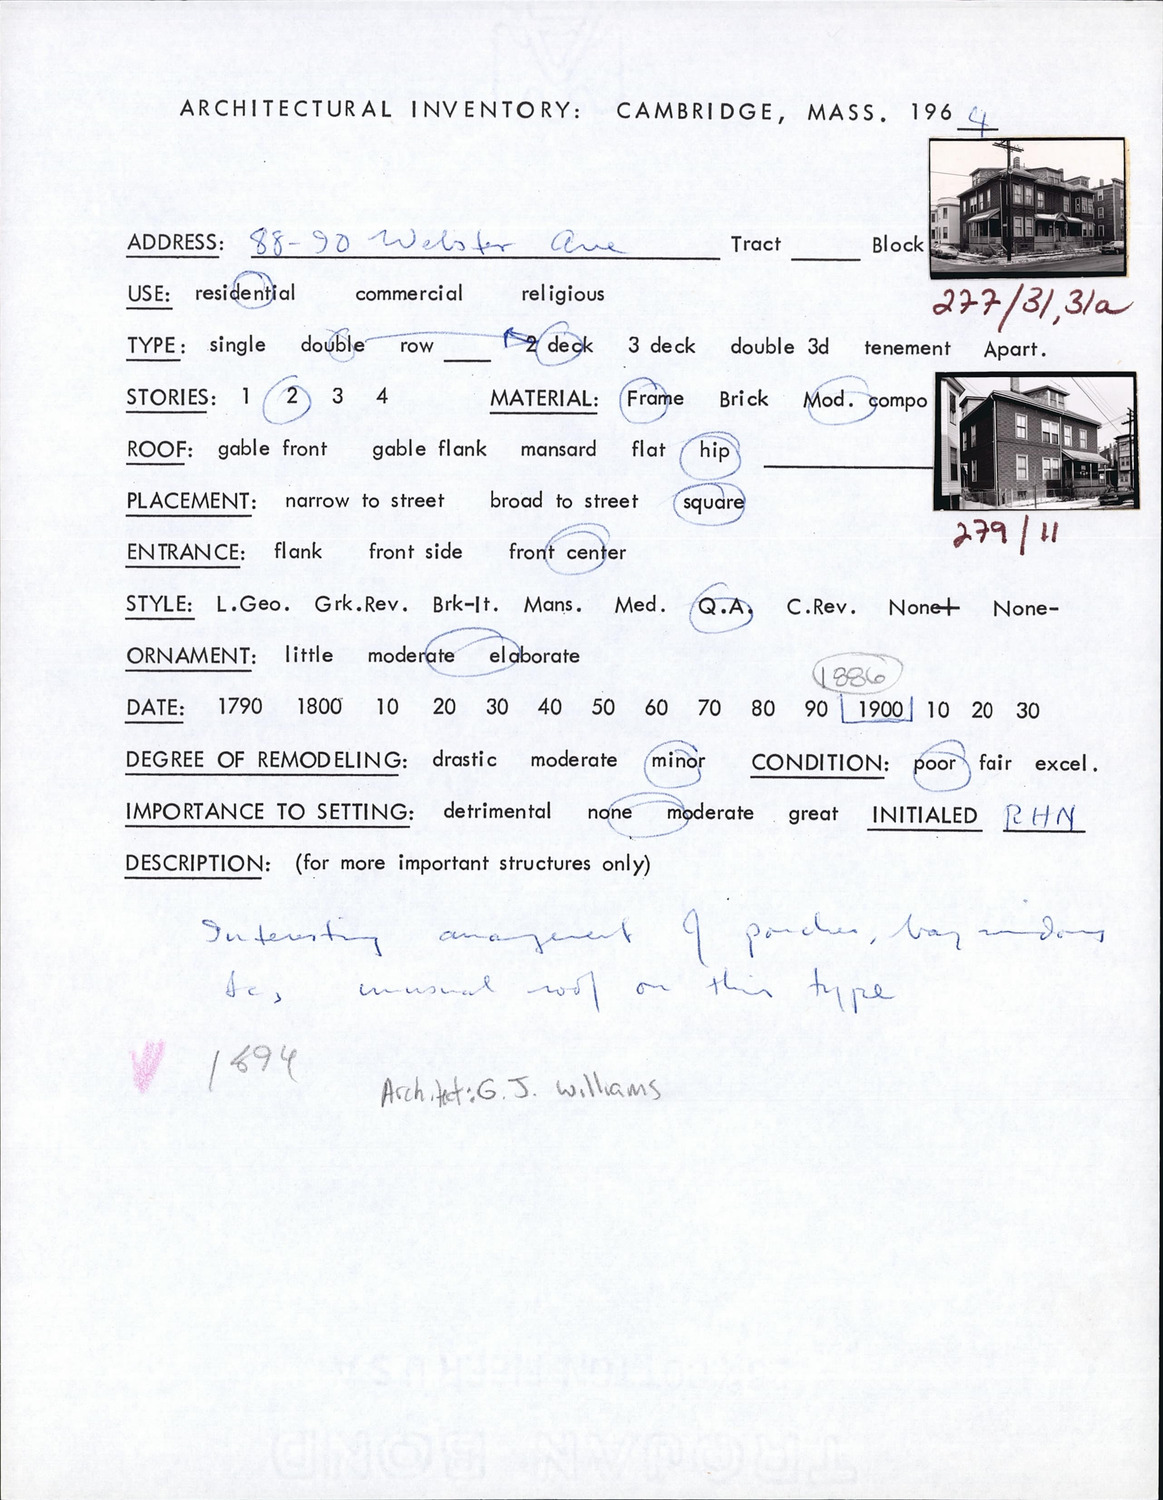 ARCHITECTURAL INVENTORY: CAMBRIDGE, MASS. 1964
ADDRESS: 88-90 Webster Ave Tract ____ Block
277/31,31a
USE: residential commercial religious
TYPE: single double row ____ 2 deck 3 deck double 3d tenement Apart.
STORIES: 1 2 3 4 MATERIAL: Frame Brick Mod. compo
ROOF: gable front gable flank mansard flat hip ____
PLACEMENT: narrow to street broad to street square
279/11
ENTRANCE: flank front side front center
STYLE: L.Geo. Grk.Rev. Brk-It. Mans. Med. Q.A. C.Rev. None+ None-
ORNAMENT: little moderate elaborate
1886
DATE: 1790 1800 10 20 30 40 50 60 70 80 90 1900 10 20 30
DEGREE OF REMODELING: drastic moderate minor CONDITION: poor fair excel.
IMPORTANCE TO SETTING: detrimental none moderate great INITIALED RHN
DESCRIPTION: (for more important structures only)
Interesting arrangement of porches, bay windows
etc, unusual roof on this type
1894
Architect: G. J. Williams